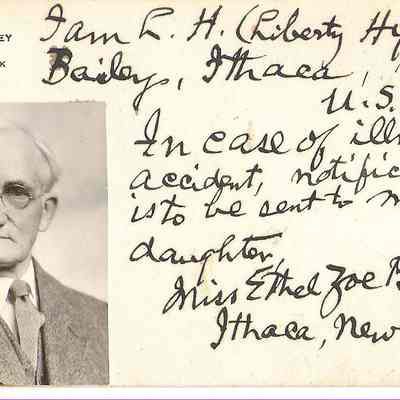 EY
K
I am L. H. (Liberty Hy
Bailey, Ithaca,
U.S.
In case of ill
accident, notific
is to be sent to m
daughter,
Miss Ethel Zoe B
Ithaca, New